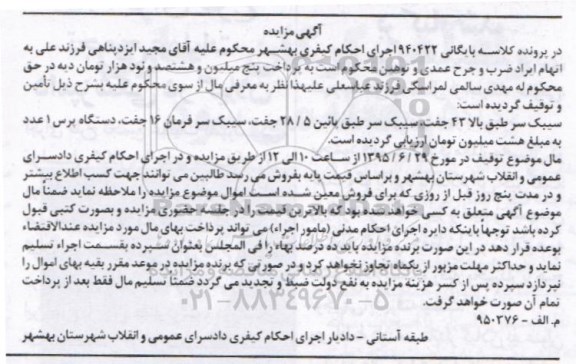 آگهی مزایده
در پرونده کلاسه بایگانی ۹۴۰۴۲۲ اجرای احکام کیفری بهشهر محکوم علیه آقای مجید ایزدپناهی فرزند علی به
اتهام ایراد ضرب و جرح عمدی و توهین محکوم است به پرداخت پنج میلیون و هشتصد و نود هزار تومان دیه در حق
محکوم له مهدی سالمی لمراسکی فرزند عباسعلی علیهذا نظر به معرفی مال از سوی محکوم علیه بشرح ذیل تأمین
و توقیف گردیده است:
سیبک سر طبق بالا ۴۳ جفت، سیبک سر طبق پائین ۲۸/۵ جفت، سیبک سر فرمان ۱۶ جفت، دستگاه پرس ۱ عدد
به مبلغ هشت میلیون تومان ارزیابی گردیده است.
مال موضوع توقیف در مورخ ۱۳۹۵/۶/۲۹ از ساعت ۱۰ الی ۱۲ از طریق مزایده و در اجرای احکام کیفری دادسرای
عمومی و انقلاب شهرستان بهشهر و براساس قیمت پایه بفروش می رسد طالبین می توانند جهت کسب اطلاع بیشتر
و در مدت پنج روز قبل از روزی که برای فروش معین شده است اموال موضوع مزایده را ملاحظه نماید ضمناً مال
موضوع آگهی متعلق به کسی خواهد شد بود که بالاترین قیمت را در جلسه حضوری مزایده و بصورت کتبی قبول
کرده باشد توجهاً باینکه دایره اجرای احکام مدنی (مامور اجراء) می تواند پرداخت بهای مال مورد مزایده عندالاقتضاء
بوعده قرار دهد در این صورت برنده مزایده باید ده درصد بهاء را فی المجلس بعنوان سپرده بقسمت اجراء تسلیم
نماید و حداکثر مهلت مزبور از یکماه تجاوز نخواهد کرد و در صورتی که برنده مزایده در موعد مقرر بقیه بهای اموال را
نپردازد سپرده پس از کسر هزینه مزایده به نفع دولت ضبط و تجدید می گردد ضمناً تسلیم مال فقط بعد از پرداخت
تمام آن صورت خواهد گرفت.
م. الف - ۹۵۰۳۷۶
طبقه آستانی - دادیار اجرای احکام کیفری دادسرای عمومی و انقلاب شهرستان بهشهر
۰۲۱-۸۸۳۴۹۶۷۰-۵